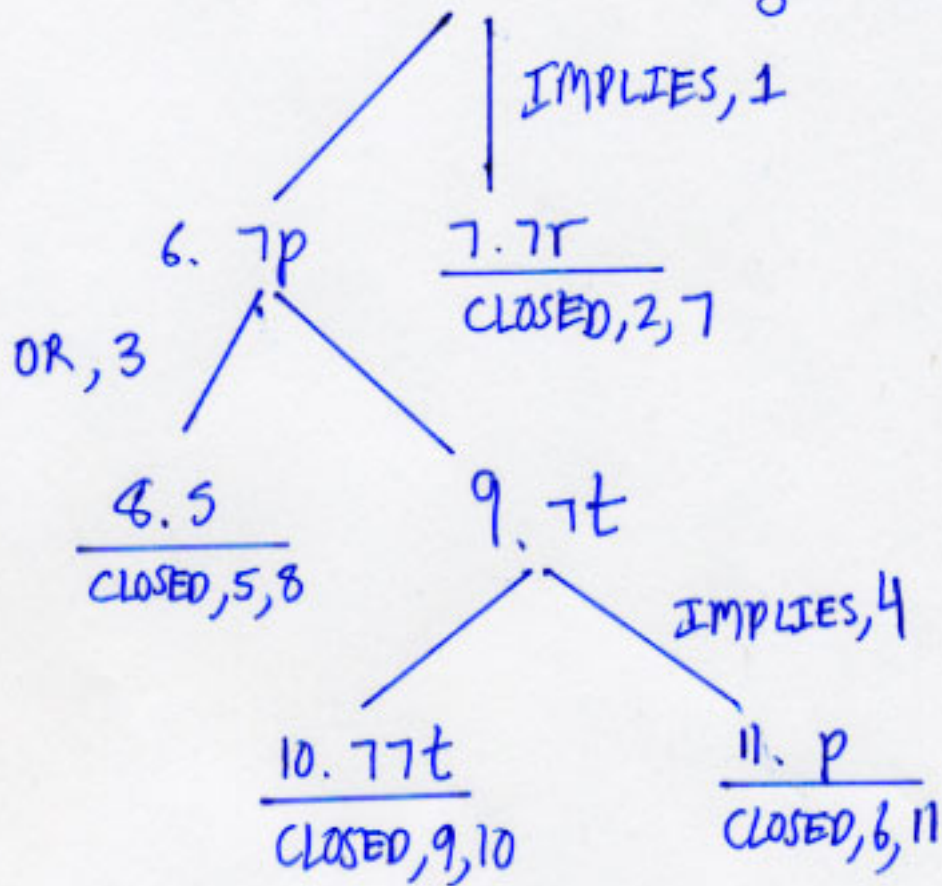 IMPLIES, 1
6. ¬p
7. ¬r
CLOSED, 2, 7
OR, 3
8. s
CLOSED, 5, 8
9. ¬t
IMPLIES, 4
10. ¬¬t
CLOSED, 9, 10
11. p
CLOSED, 6, 11